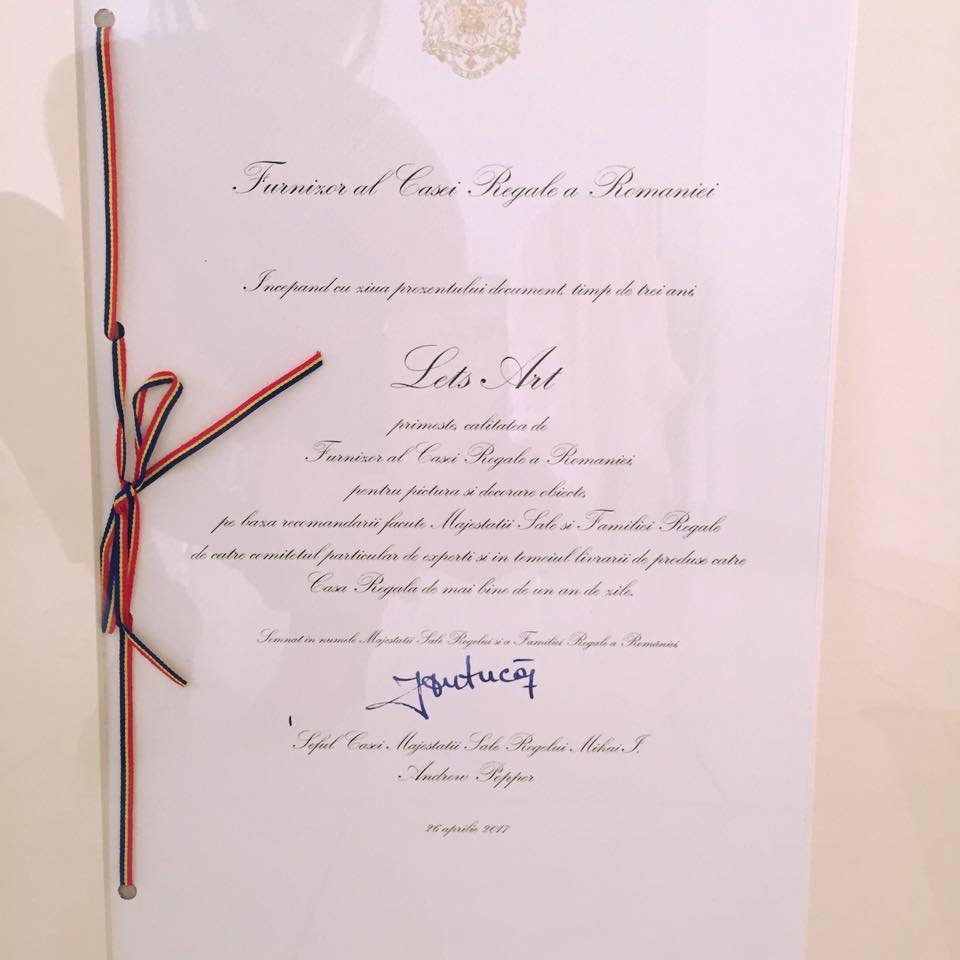 Furnizor al Casei Regale a Romaniei
Incepand cu ziua prezentului document, timp de trei ani,
Lets Art
primeste, calitatea de
Furnizor al Casei Regale a Romaniei,
pentru pictura si decorare obiecte,
pe baza recomandarii facute Majestatii Sale si Familiei Regale
de catre comitetul particular de experti si in temeiul livrarii de produse catre
Casa Regala de mai bine de un an de zile.
Semnat in numele Majestatii Sale Regelui si a Familiei Regale a României,
Seful Casei Majestatii Sale Regelui Mihai I.
Andrew Popper
26 aprilie 2017